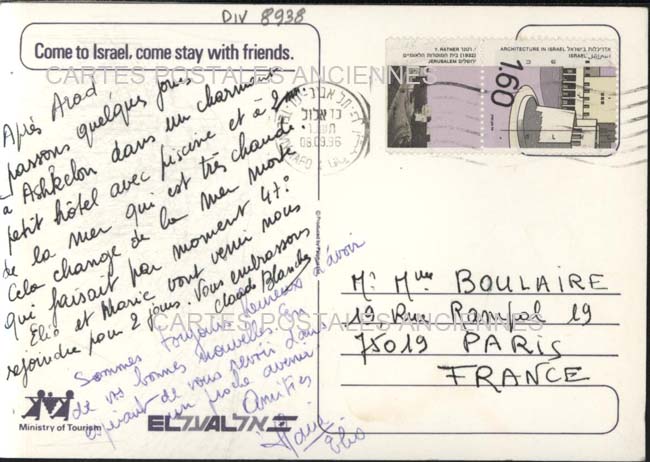 DIV 8938
Come to Israel, come stay with friends.
CARTES POSTALES ANCIENNES
Après Arad
passons quelques jours
à Ashkelon dans un charmant
petit hôtel avec piscine et à 2 mn
de la mer qui est très chaude.
Cela change de la mer morte
qui faisait par moment 47°.
Elio et Marie vont venir nous
rejoindre pour 2 jours. Vous embrassons
Claude Blanche
Sommes toujours heureux d'avoir
de vos bonnes nouvelles. En
espérant de vous revoir dans
un proche avenir.
Amitiés
Elio
CARTES POSTALES ANCIENNES
Ministry of Tourism
ELאלעלAL
Y. RATNER / רטנר
(1932) בית המוסדות הלאומיים
JERUSALEM ירושלים
ARCHITECTURE IN ISRAEL אדריכלות בישראל
ISRAEL
1.60
Mr. Mme BOULAIRE
19 Rue Rampal 19
75019 PARIS
FRANCE